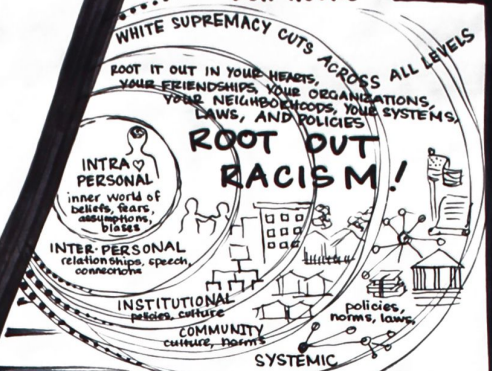 WHITE SUPREMACY CUTS ACROSS ALL LEVELS
ROOT IT OUT IN YOUR HEARTS,
YOUR FRIENDSHIPS, YOUR ORGANIZATIONS,
YOUR NEIGHBORHOODS, YOUR SYSTEMS,
LAWS, AND POLICIES
ROOT OUT
RACISM!
INTRA
PERSONAL
inner world of
beliefs, fears,
assumptions,
biases
INTER-PERSONAL
relationships, speech,
connections
INSTITUTIONAL
policies, culture
COMMUNITY
culture, norms
SYSTEMIC
policies,
norms, laws,